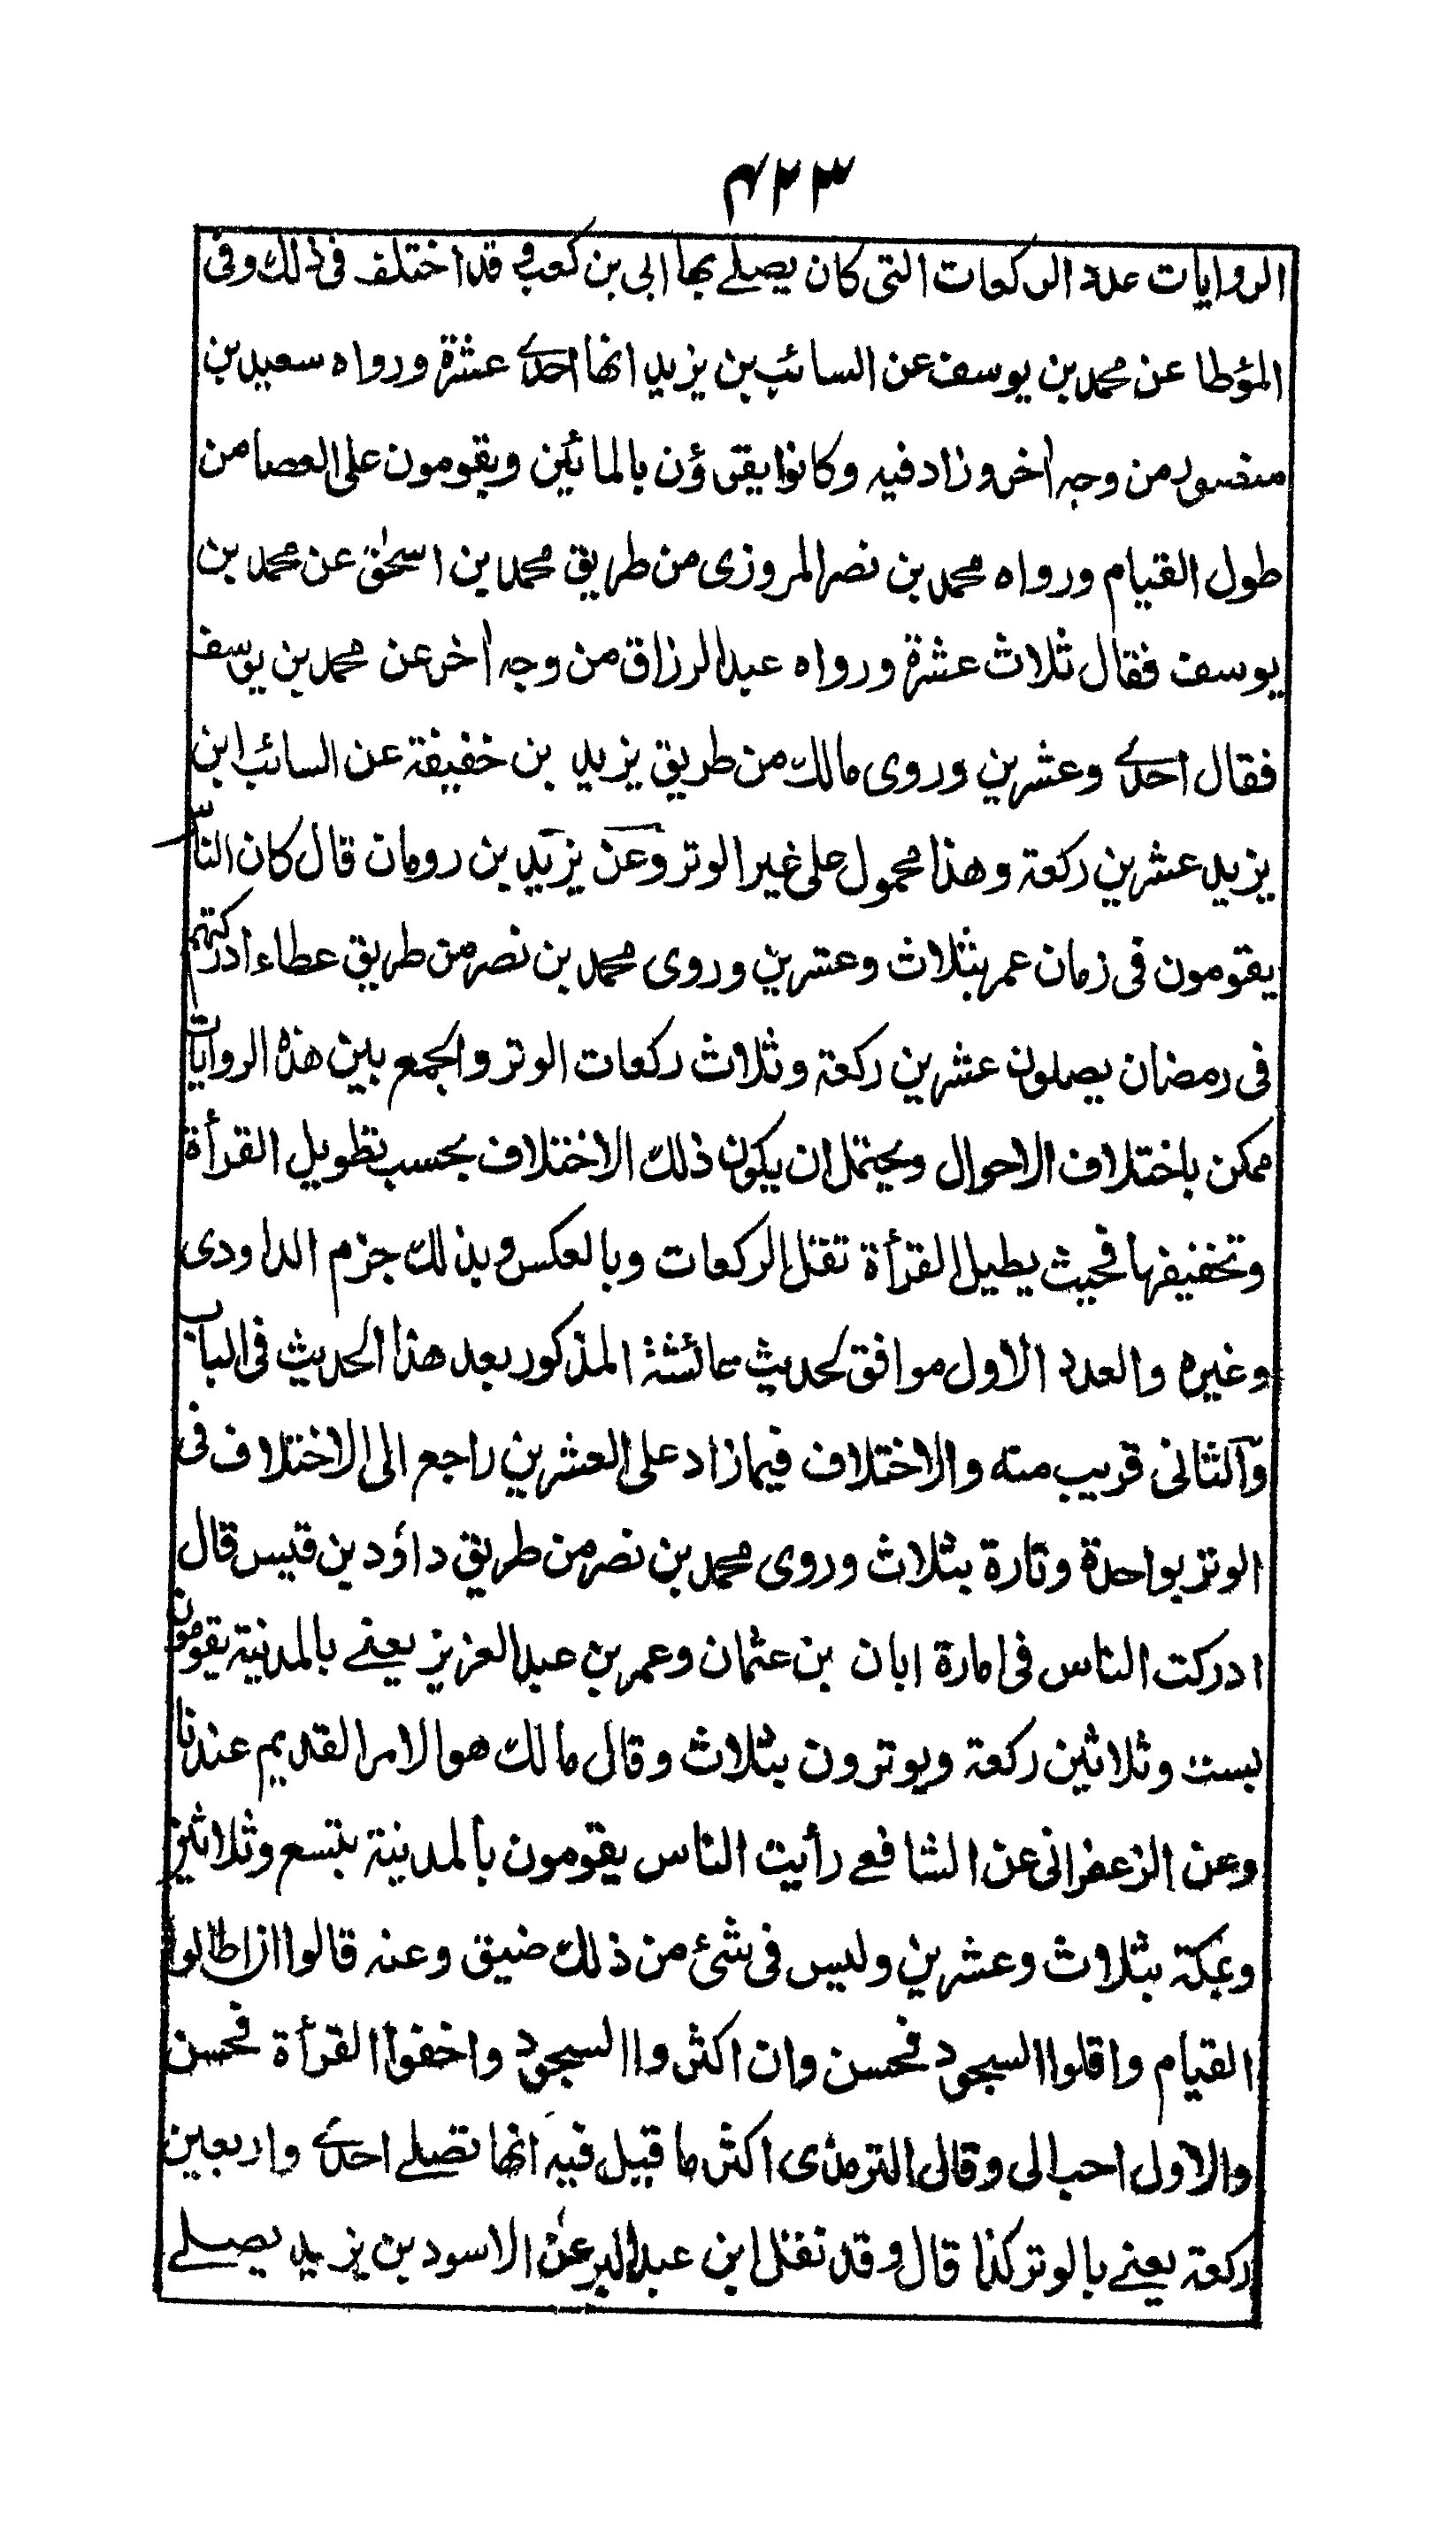 ۴۲۳
الروايات عدد الركعات التى كان يصلے بها ابى بن كعب و قد اختلف فى ذلك وفى
المؤطا عن محمد بن يوسف عن السائب بن يزيد انها احدے عشرة ورواه سعيد بن
منصور من وجه اٰخر وزاد فيه وكانوا يقرؤن بالمائين ويقومون على العصا من
طول القيام ورواه محمد بن نصر المروزى من طريق محمد بن اسحٰق عن محمد بن
يوسف فقال ثلاث عشرة ورواه عبد الرزاق من وجه اٰخر عن محمد بن يوسف
فقال احدے وعشرين وروى مالك من طريق يزيد بن خفيفة عن السائب ابن
يزيد عشرين ركعة وهذا محمول على غير الوتر وعن يزيد بن رومان قال كان الناس
يقومون فى زمان عمر بثلاث وعشرين وروى محمد بن نصر من طريق عطاء ادركتهم
فى رمضان يصلون عشرين ركعة وثلاث ركعات الوتر والجمع بين هذه الروايات
ممكن باختلاف الاحوال ويحتمل ان يكون ذلك الاختلاف بحسب تطويل القرأة
وتخفيفها فحيث يطيل القرأة تقل الركعات وبالعكس و بذلك جزم الداودى
وغيره والعدد الاول موافق لحديث عائشة المذكور بعد هذا الحديث فى الباب
والثانى قريب منه والاختلاف فيما زاد على العشرين راجع الى الاختلاف فى
الوتر بواحدة وتارة بثلاث وروى محمد بن نصر من طريق داؤد بن قيس قال
ادركت الناس فى امارة ابان بن عثمان وعمر بن عبد العزيز يعنے بالمدينة يقومون
بست وثلاثين ركعة ويوترون بثلاث وقال مالك هو الامر القديم عندنا
وعن الزعفرانى عن الشافعے رأيت الناس يقومون بالمدينة بتسع وثلاثين
وبمكة بثلاث وعشرين وليس فى شئ من ذلك ضيق وعنه قالوا ان اطالوا
القيام واقلوا السجود فحسن وان اكثروا السجود واخفوا القرأة فحسن
والاول احب الى وقال الترمذى اكثر ما قيل فيه انها تصلے احدے واربعين
ركعة يعنے بالوتر كذا قال و قد نقل ابن عبد البر عن الاسود بن يزيد يصلے